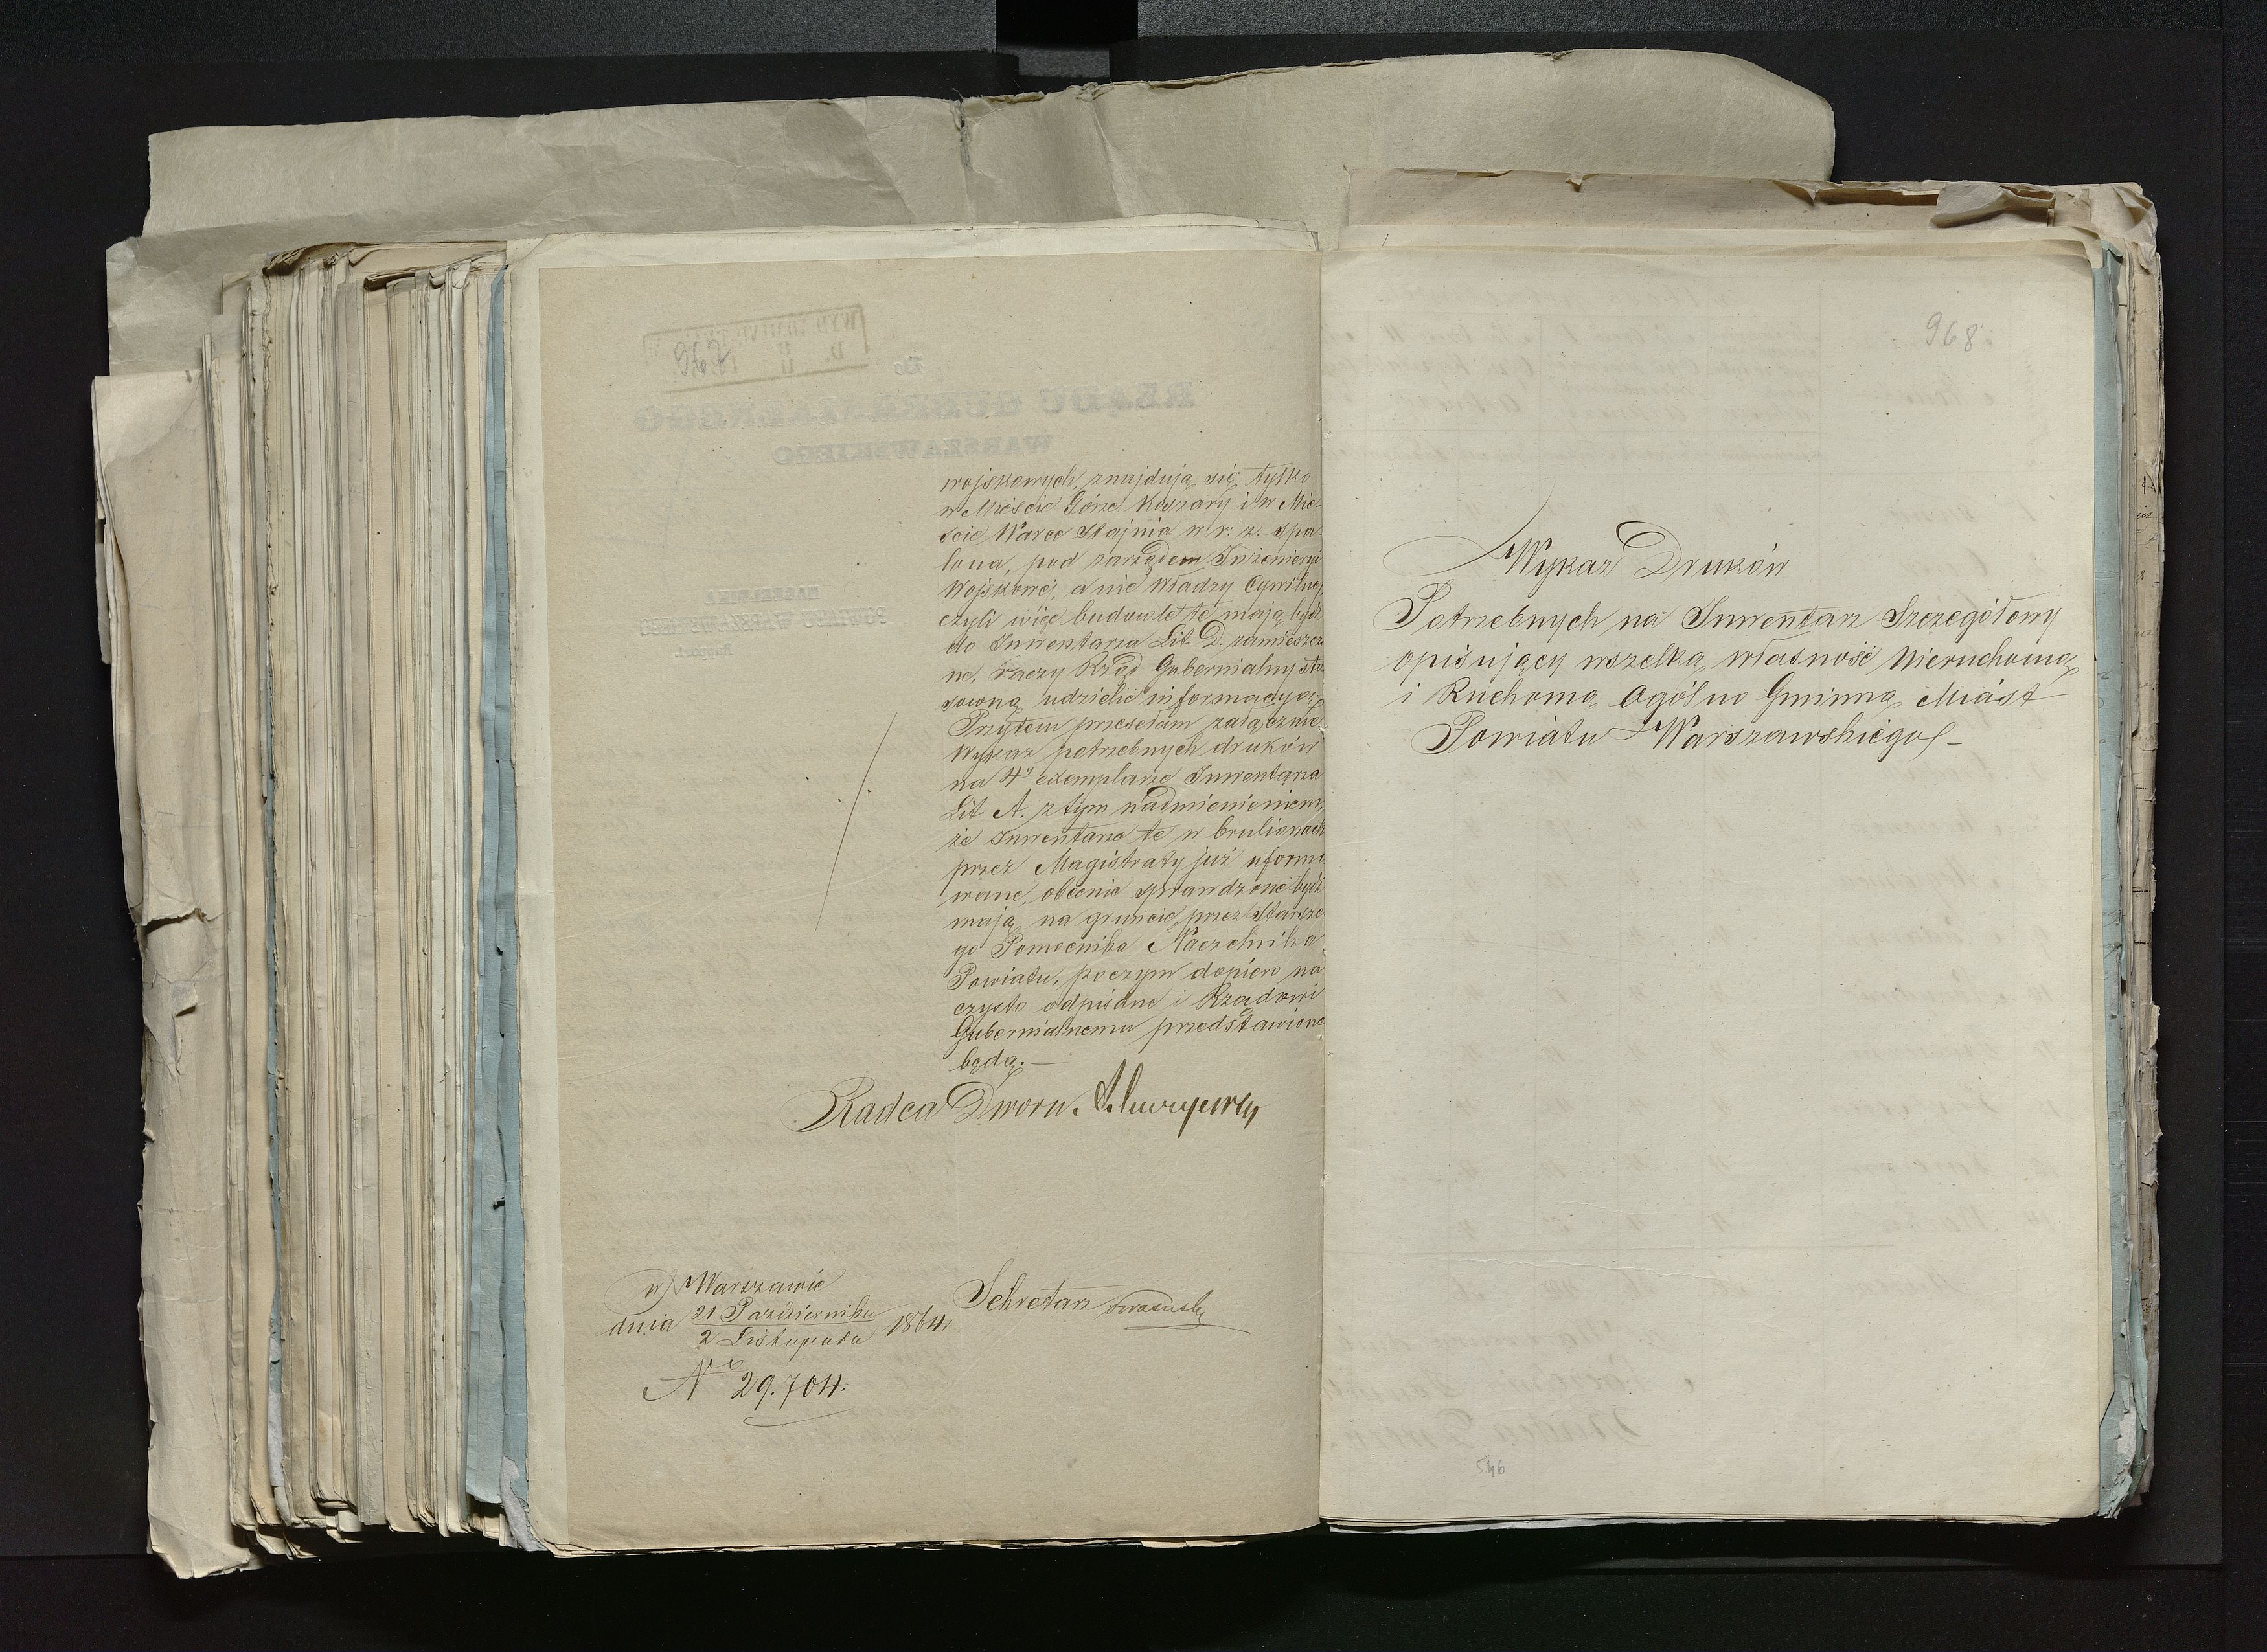 wojskowych, znajdują się tylko
w Mieście Górze Koszary i w Mie-
ście Warce Stajnia w r. z. spa-
lona, pod zarządem Inżenieryi
Wojskowéj, a nie Władzy Cywilnéj
czyli więc budowle te mają bydź
do Inwentarza Lit. D. zamieszczo
ne, raczy Rząd Gubernialny sto
sowną udzielić informacyą.
Przytem przesełam załącznie
Wykaz potrzebnych druków
na 4y exemplarze Inwentarza
Lit A. z tym nadmienieniem,
że Inwentarze te w brulionach
przez Magistraty już uformo
wane, obecnie sprawdzone bydź
mają na gruncie, przez Starsze
go Pomocnika Naczelnika
Powiatu, poczym dopiero na
czysto odpisane i Rządowi
Gubernialnemu przedstawione
będą.—
Radca Dworu.
w Warszawie
dnia 21 Października
2 Listopada 1864
Sekretarz
No 29.704.
968
Wykaz Druków
Potrzebnych na Inwentarz Szczegółowy
opisujący wszelką własność Nieruchomą
i Ruchomą Ogólno Gminną Miast
Powiatu Warszawskiego
546